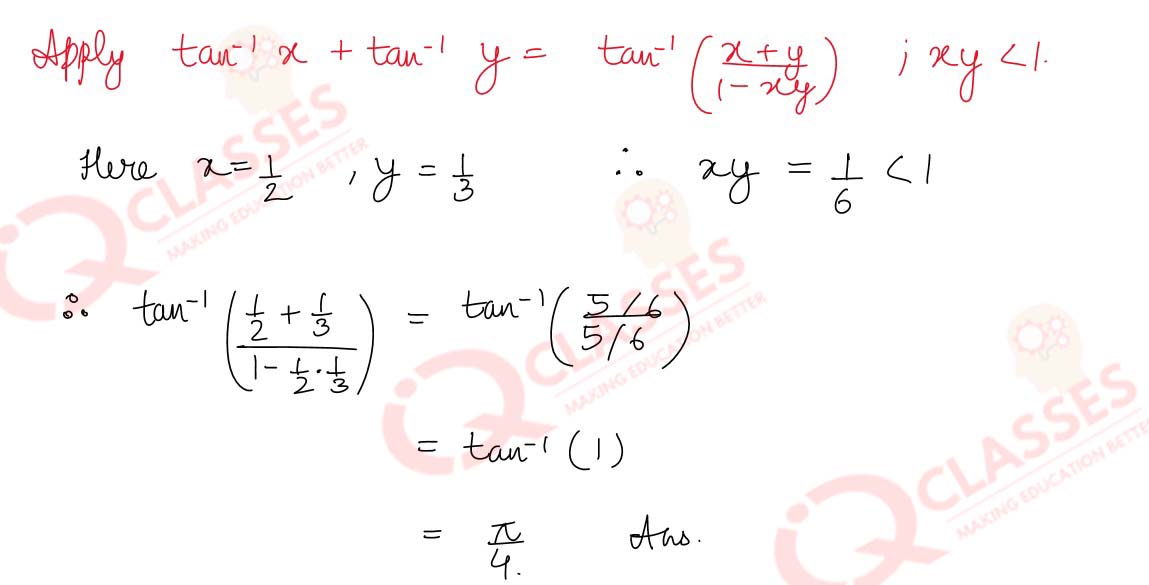 Apply tan⁻¹ x + tan⁻¹ y = tan⁻¹ ((x+y)/(1-xy)) ; xy < 1.
Here x = 1/2 , y = 1/3 ∴ xy = 1/6 < 1
∴ tan⁻¹ ((1/2 + 1/3)/(1 - 1/2 · 1/3)) = tan⁻¹ ((5/6)/(5/6))
= tan⁻¹ (1)
= π/4. Ans.
iQ CLASSES
MAKING EDUCATION BETTER
iQ CLASSES
MAKING EDUCATION BETTER
iQ CLASSES
MAKING EDUCATION BETTER